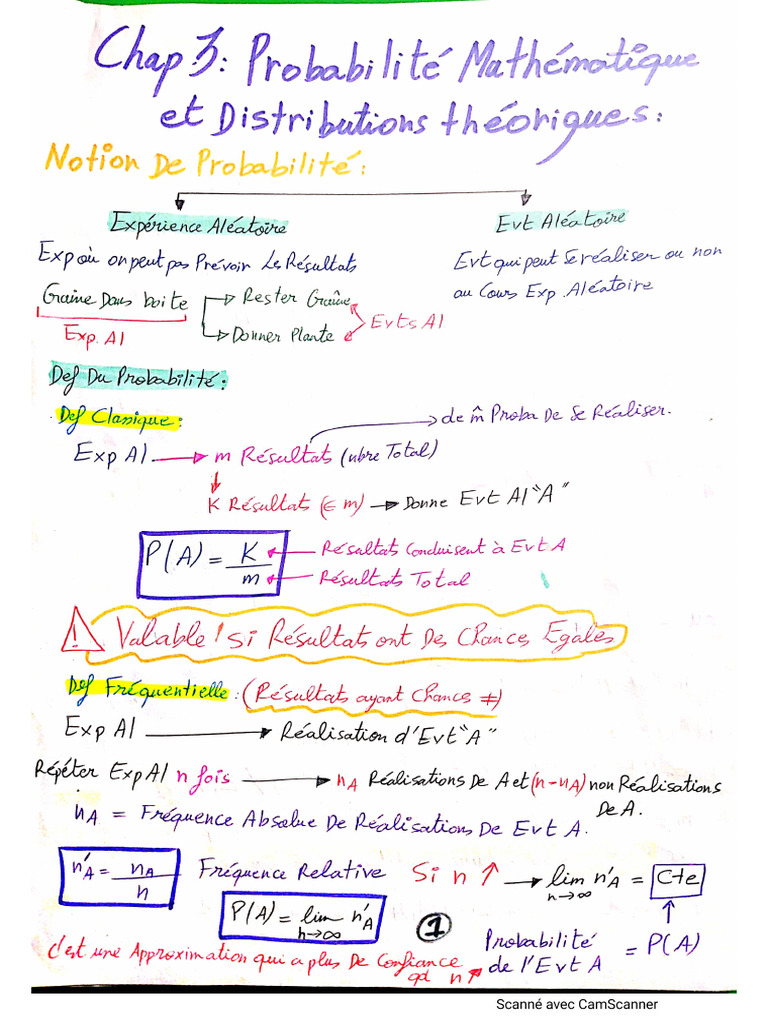 Chap.3: Probabilité Mathématique
et Distributions théoriques:
Notion De Probabilité:
Expérience Aléatoire
Evt Aléatoire
Exp où on peut pas Prévoir Les Résultats
Evt qui peut Se réaliser ou non
au Cours Exp. Aléatoire
Graine Dans boite
Rester Graine
Donner Plante
Exp. Al
Evts Al
Def Du Probabilité:
Def Classique:
de m̂ Proba De Se Réaliser.
Exp Al → m Résultats (nbre Total)
K Résultats (∈ m) → Donne Evt Al "A"
P(A) = K/m
Résultats Conduisent à Evt A
Résultats Total
Valable! Si Résultats ont Des Chances Egales
Def Fréquentielle: (Résultats ayant Chances ≠)
Exp Al → Réalisation d'Evt "A"
Répéter Exp Al n fois → nA Réalisations De A et (n-nA) non Réalisations
De A.
nA = Fréquence Absolue De Réalisations De Evt A.
n'A = nA/n Fréquence Relative Si n ↑ → lim n'A = Cte
n→∞
P(A) = lim n'A
n→∞
1
Probabilité
de l'Evt A
= P(A)
C'est une Approximation qui a plus De Confiance
qd n ↗
Scanné avec CamScanner